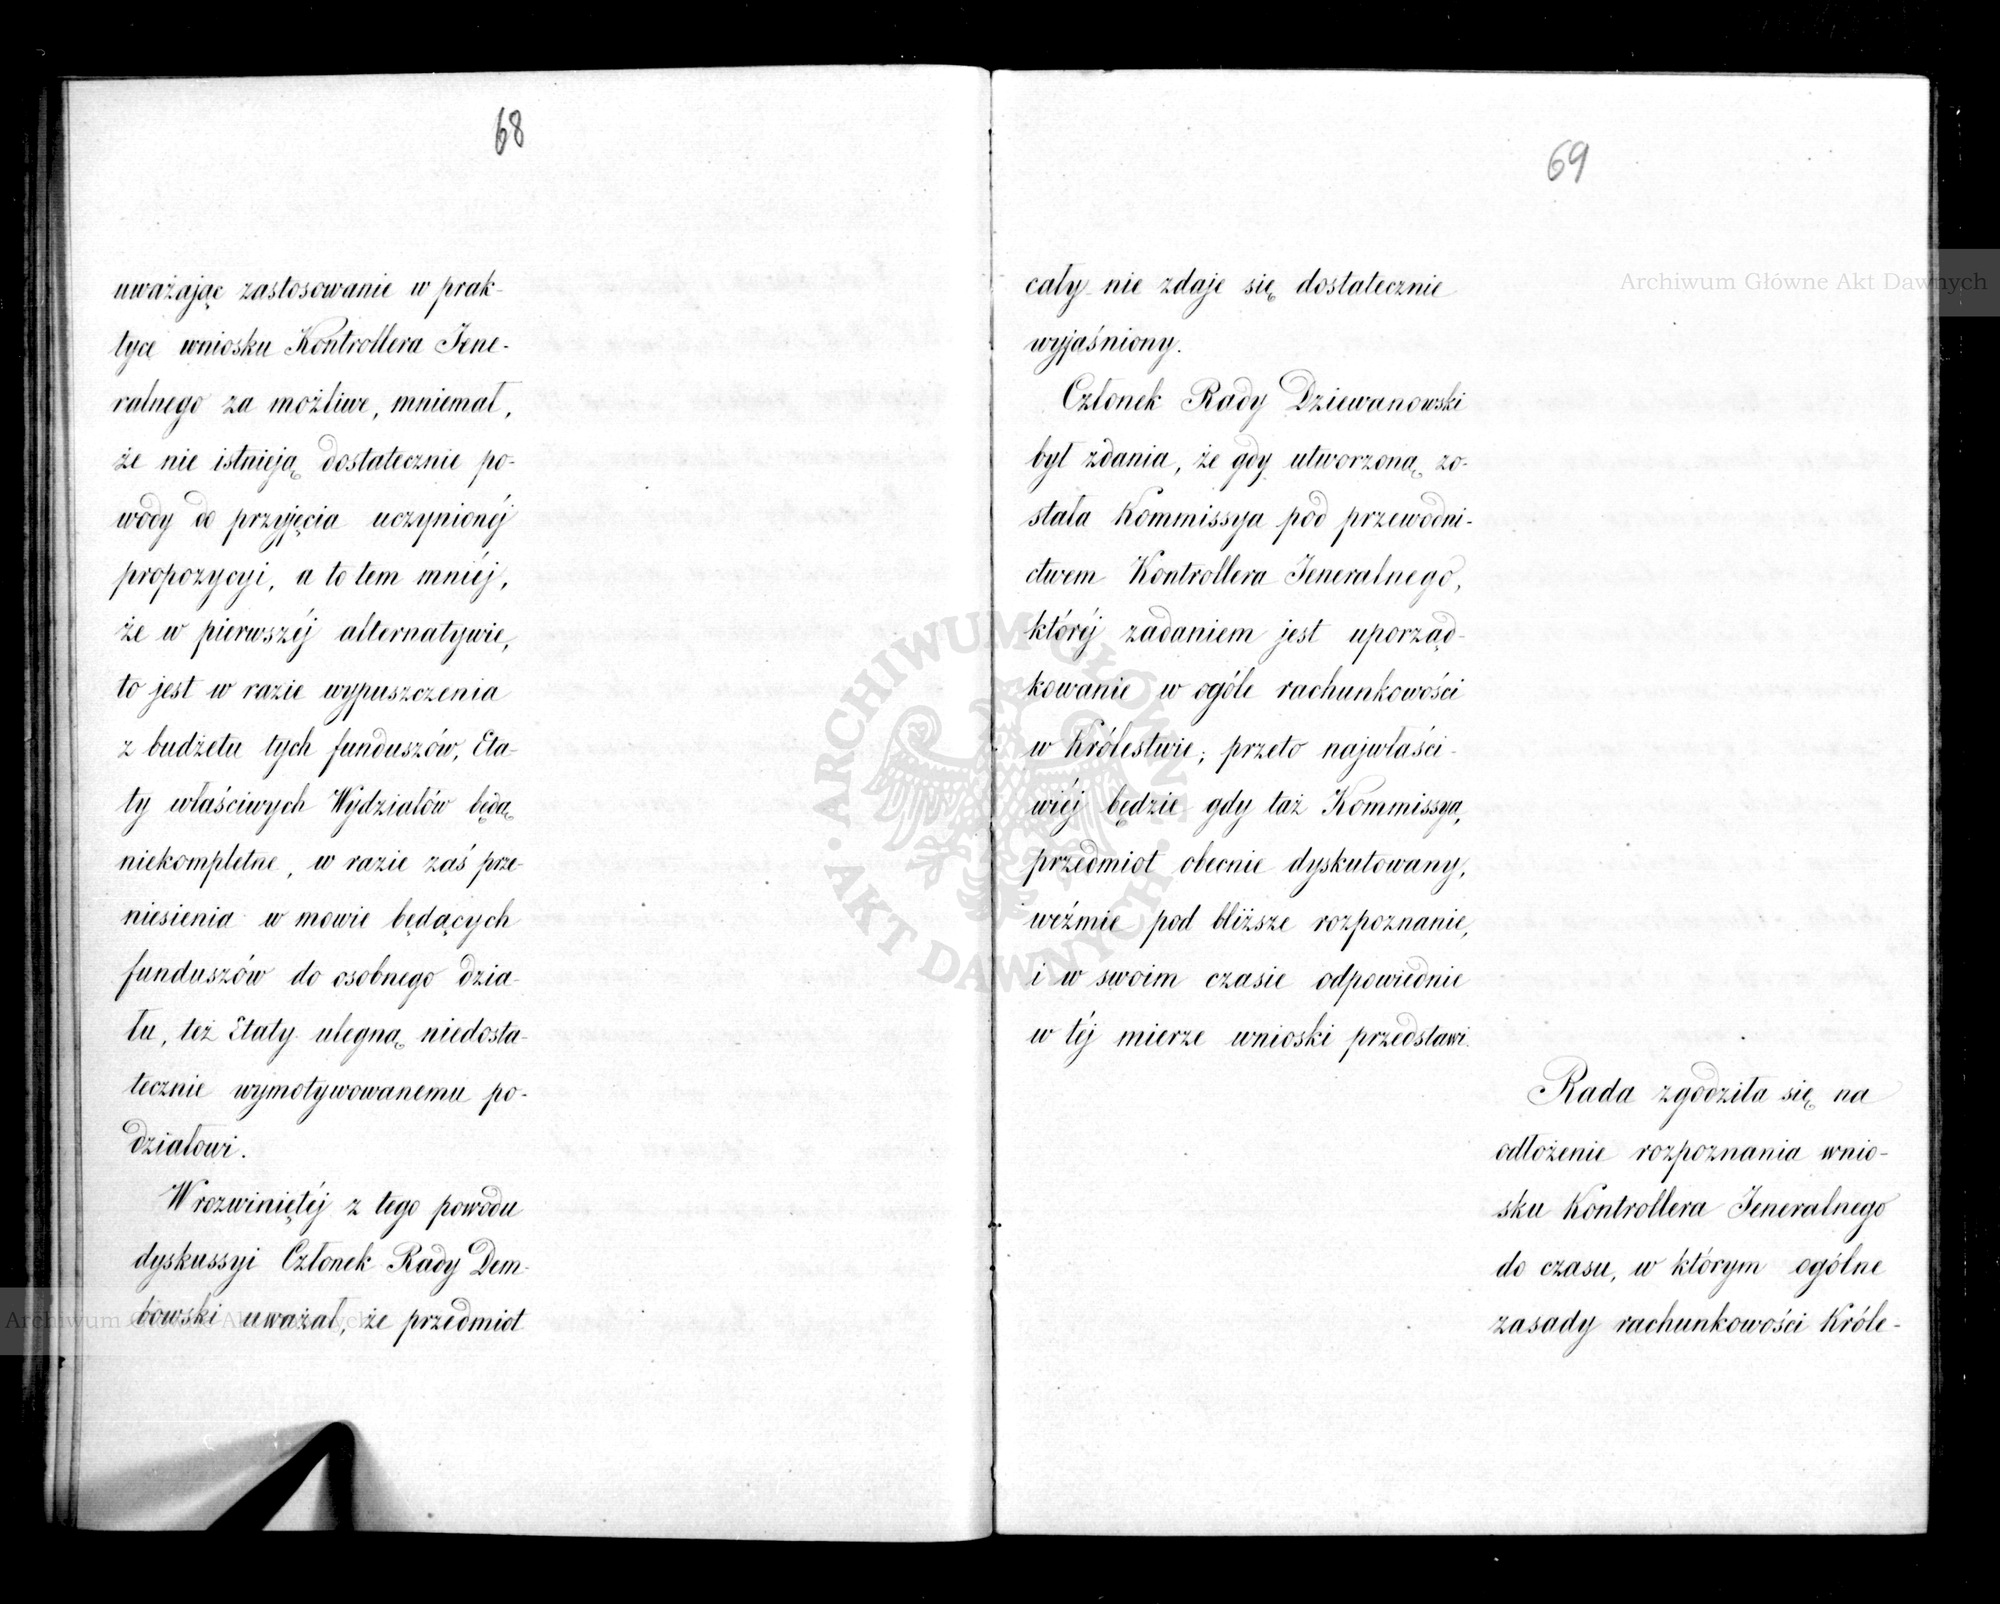 68
uważając zastosowanie w prak-
tyce wniosku Kontrollera Jene-
ralnego za możliwe, mniemał,
że nie istnieją dostatecznie po-
wody do przyjęcia uczynionéj
propozycyi, a to tem mniéj,
że w pierwszéj alternatywie,
to jest w razie wypuszczenia
z budżetu tych funduszów, Eta-
ty właściwych Wydziałów będą
niekompletne, w razie zaś prze-
niesienia w mowie będących
funduszów do osobnego dzia-
łu, też Etaty ulegną niedosta-
tecznie wymotywowanemu po-
działowi.
W rozwiniętéj z tego powodu
dyskussyi Członek Rady Dem-
bowski uważał, że przedmiot
69
cały nie zdaje się dostatecznie
wyjaśniony.
Członek Rady Dziewanowski
był zdania, że gdy utworzoną zo-
stała Kommissya pod przewodni-
ctwem Kontrollera Jeneralnego,
któréj zadaniem jest uporząd-
kowanie w ogóle rachunkowości
w Królestwie; przeto najwłaści-
wiéj będzie gdy taż Kommissya,
przedmiot obecnie dyskutowany,
weźmie pod bliższe rozpoznanie,
i w swoim czasie odpowiednie
w téj mierze wnioski przedstawi.
Rada zgodziła się na
odłożenie rozpoznania wnio-
sku Kontrollera Jeneralnego
do czasu, w którym ogólne
zasady rachunkowości Króle-
Archiwum Główne Akt Dawnych
Archiwum Główne Akt Dawnych
ARCHIWUM GŁÓWNE
AKT DAWNYCH